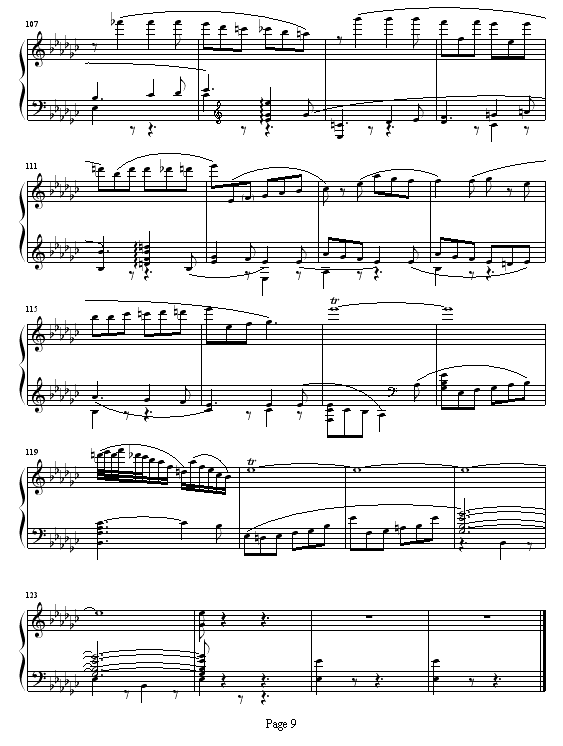 107
111
115
tr
119
tr
123
Page 9